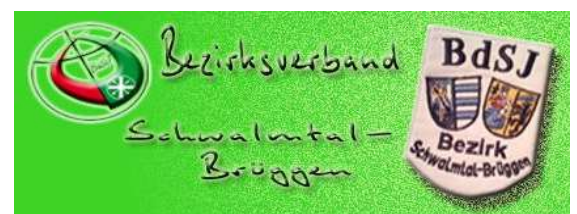 Bezirksverband
Schwalmtal-
Brüggen
BdSJ
Bezirk
Schwalmtal-Brüggen